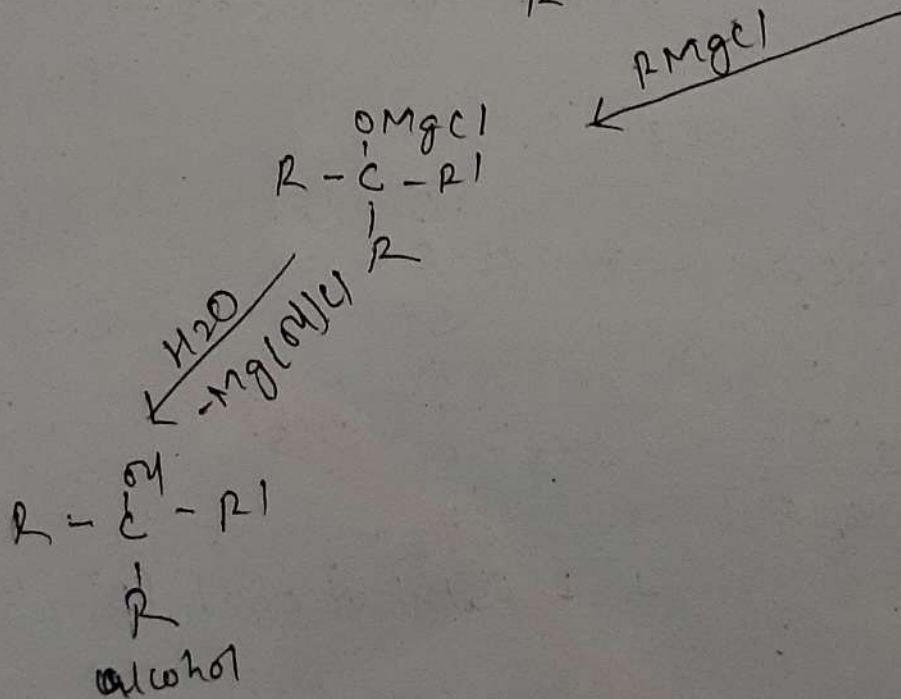 R
RMgCl
OMgCl
R - C - R1
R
H2O
-Mg(OH)Cl
OH
R - C - R1
R
alcohol